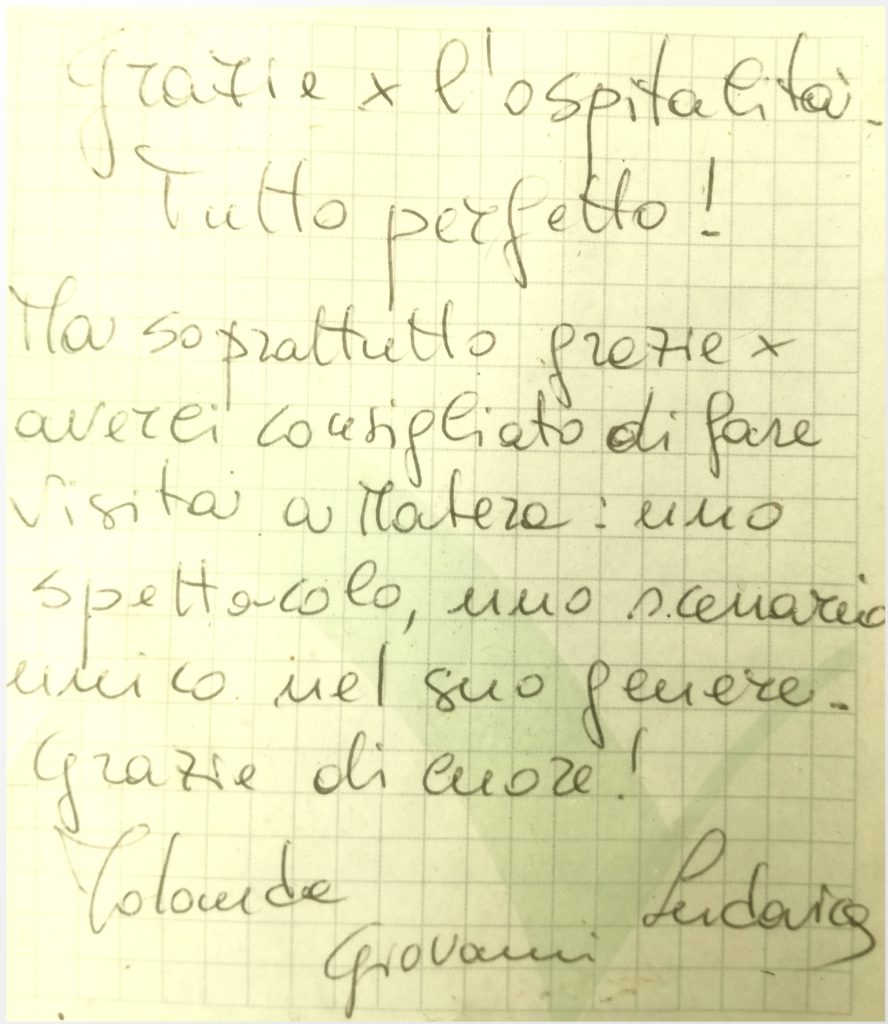 Grazie x l'ospitalità.
Tutto perfetto!
Ma soprattutto grazie x
averci consigliato di fare
visita a Matera: uno
spettacolo, uno scenario
unico nel suo genere.
Grazie di cuore!
Yolanda Ludovica
Giovanni